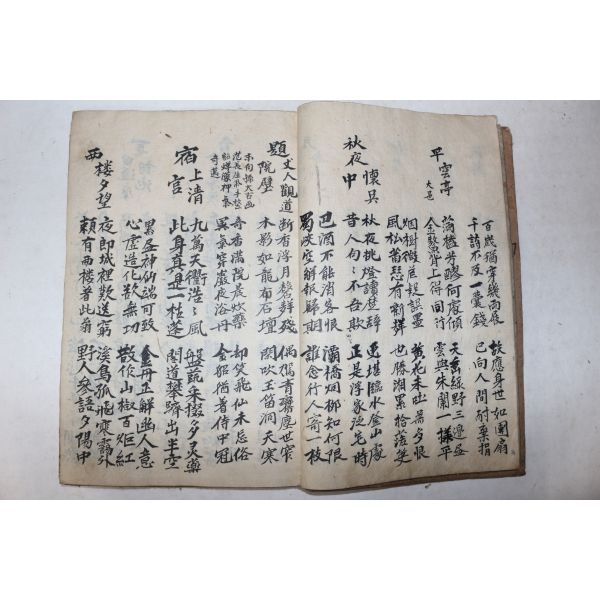 百歲猶穿幾兩屐 故應身世如團扇
千詩不及一囊錢 已向人間耐棄捐
平雲亭 大邑
滿榼芳醪何處傾 天垂綠野三邊盡
金鰲背上得同行 雲與朱闌一樣平
烟樹微茫疑誤墨 黃花未吐無多恨
風松蕭瑟有新聲 也勝湘累拾落英
秋夜懷吳中
秋夜挑燈讀楚辭 更堪臨水登山處
昔人句句不吾欺 正是浮家泛宅時
巴酒不能消客恨 灞橋烟柳知何限
蜀巫空解報歸期 誰念行人寄一枝
題丈人觀道院壁
斷香浮月磬聲殘 偶駕青鸞塵世窄
木影如龍布石壇 閑吹玉笛洞天寒
奇香滿院晨炊藥 却笑飛仙未忘俗
異氣穿巖夜浴丹 金貂猶着侍中冠
宿上清宮
九萬天衢浩浩風 盤蔬采掇多灵藥
此身真是一枯蓬 閣道攀躋出半空
累盡神仙端可致 金丹正解幽人意
心虛造化欲無功 散作山椒百炬紅
西樓夕望
夜郎城裡歎途窮 溪鳥孤飛寒靄外
賴有西樓著此翁 野人參語夕陽中